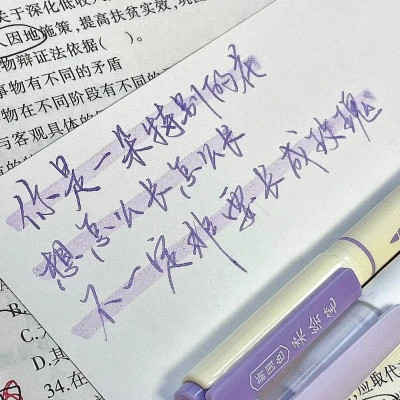 关于深化低收入
人因地施策,提高扶贫实效,巩
物辩证法依据( )。
事物有不同的矛盾
物在不同阶段有不同的
与客观具体的
你是一朵特别的花
想怎么长怎么长
不一定非要长成玫瑰
新国色 柔绘笔
B.
C.
D.其
34.在
应取代